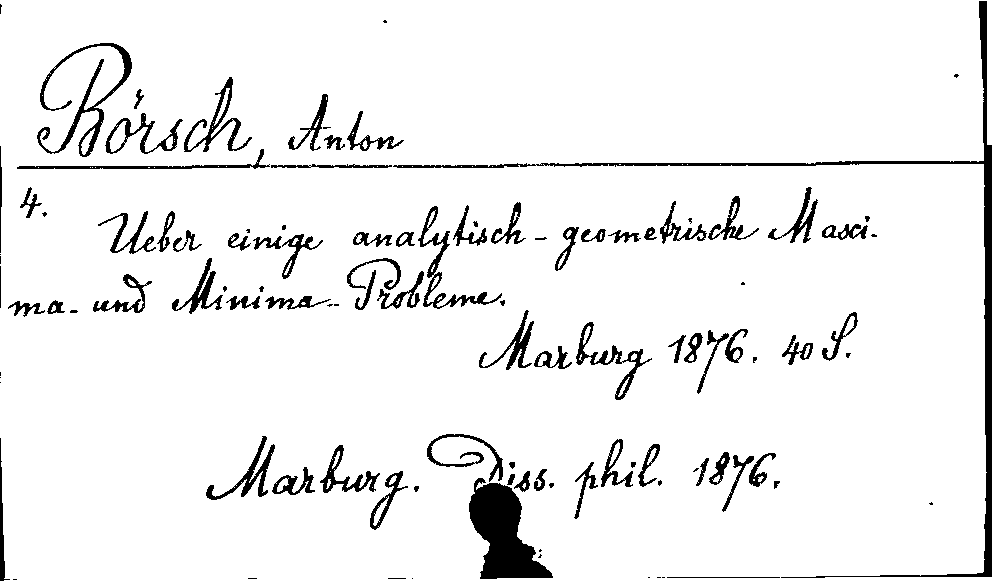 Börsch, Anton
4.
Ueber einige analytisch-geometrische Maxi-
ma- und Minima-Probleme.
Marburg 1876. 40 S.
Marburg. Diss. phil. 1876.